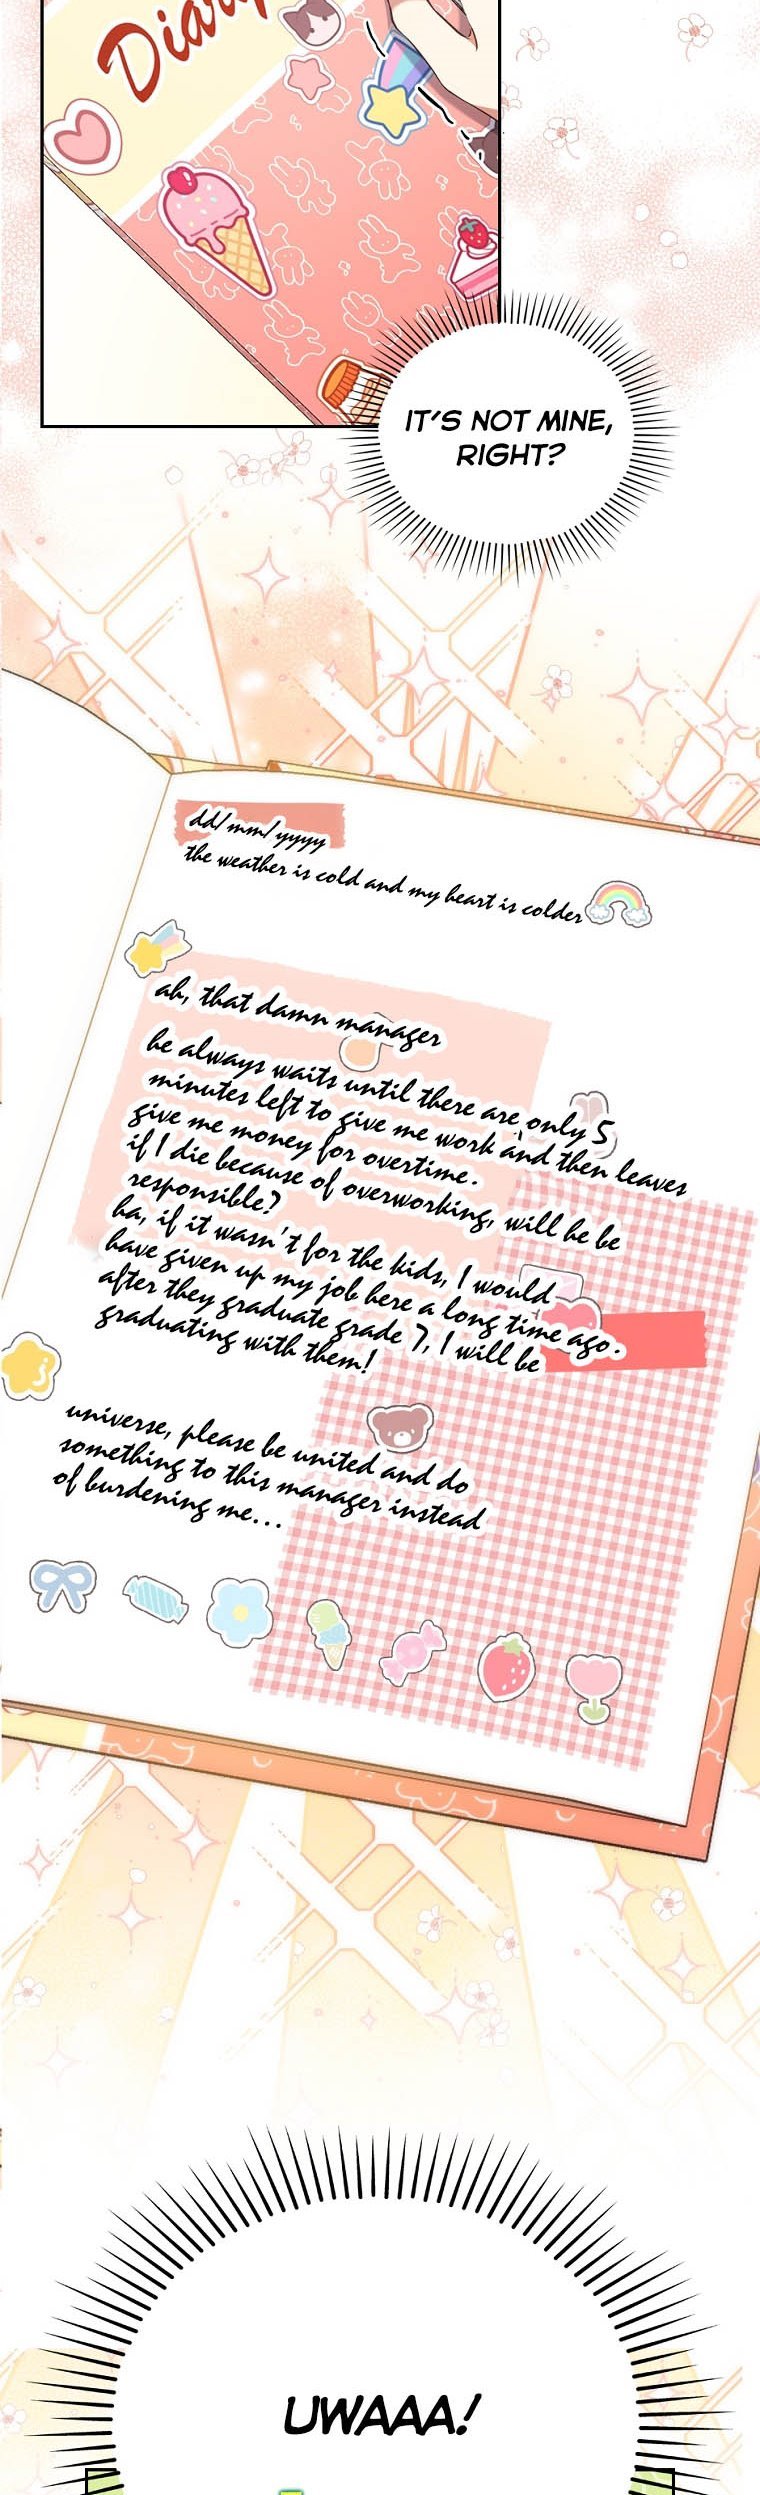 Diary
IT'S NOT MINE,
RIGHT?
dd/mm/yyyy
the weather is cold and my heart is colder
ah, that damn manager
he always waits until there are only 5
minutes left to give me work and then leaves
give me money for overtime.
if I die because of overworking, will he be
responsible?
ha, if it wasn't for the kids, I would
have given up my job here a long time ago.
after they graduate grade 7, I will be
graduating with them!
universe, please be united and do
something to this manager instead
of burdening me...
UWAAA!